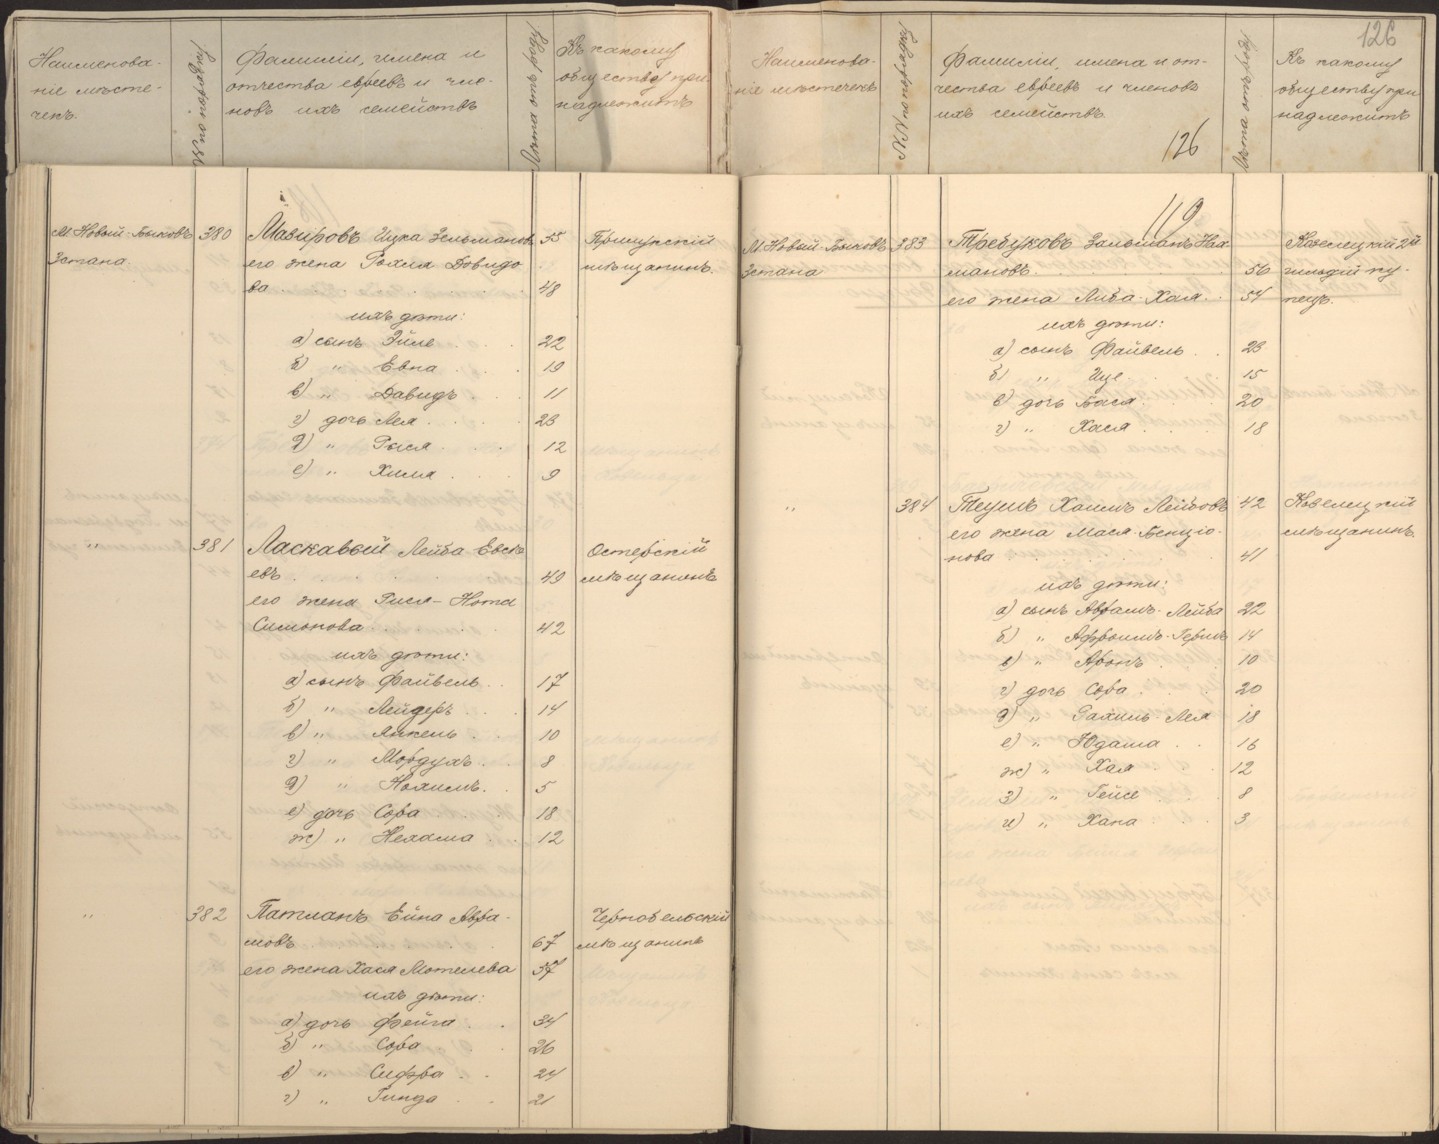 Наименова-
ніе мѣсте-
чекъ.
№ по порядку
Фамиліи, имена и
отчества евреевъ и чле-
новъ ихъ семействъ
Лѣта отъ роду
Къ какому
обществу при
надлежитъ
М. Новый-Быковъ
3 стана.
380
Мазировъ Ицка Зельманов.
55
Прилукскій
его жена Рохля Довидо
мѣщанинъ.
ва
48
ихъ дѣти:
а) сынъ Зйле
22
б) " Евна
19
в) " Давидъ
11
г) дочь Лея
23
д) " Рыся
12
е) " Химя
9
"
381
Ласкавый Лейба Евсѣ
Остерскій
евъ
49
мѣщанинъ
его жена Рися-Нота
Симонова
42
ихъ дѣти:
а) сынъ Файвель
17
б) " Лейдеръ
14
в) " Янкель
10
г) " Мордухъ
8
д) " Нохимъ
5
е) дочь Сора
18
ж) " Нехама
12
"
382
Патланъ Ейна Авра-
Чернобельскій
мовъ
67
мѣщанинъ
его жена Хася Мотелева
57
ихъ дѣти:
а) дочь Фейга
34
б) " Сора
26
в) " Сифра
24
г) " Гинда
21
126
Наименова-
ніе мѣстечекъ
№№ по порядку
Фамиліи, имена и от-
чества евреевъ и членовъ
ихъ семействъ.
126
Лѣта отъ роду
Къ какому
обществу при
надлежитъ
119
М. Новый-Быковъ
3 стана
383
Требуковъ Зальманъ Нах
Козелецкій 2й
мановъ
56
гильдіи ку-
его жена Либа-Хая
54
пецъ.
ихъ дѣти:
а) сынъ Файвель
23
б) " Ице
15
в) дочь Бася
20
г) " Хася
18
"
384
Теушъ Хаимъ Лейбовъ
42
Козелецкій
его жена Мася Бенціо-
мѣщанинъ.
нова
41
ихъ дѣти:
а) сынъ Аврамъ-Лейба
22
б) " Афроимъ-Гершъ
14
в) " Аронъ
10
г) дочь Сора
20
д) " Рахиль-Лея
18
е) " Юдаша
16
ж) " Хая
12
з) " Гейсе
8
и) " Хана
3